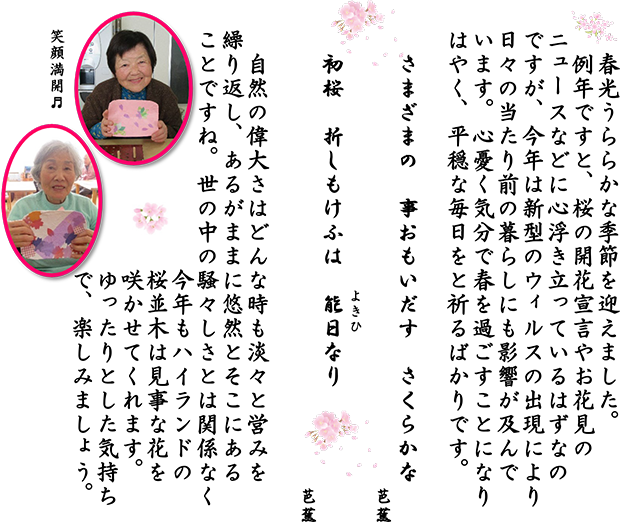 春光うららかな季節を迎えました。
例年ですと、桜の開花宣言やお花見の
ニュースなどに心浮き立っているはずなの
ですが、今年は新型のウィルスの出現により
日々の当たり前の暮らしにも影響が及んで
います。心憂く気分で春を過ごすことになり
はやく、平穏な毎日をと祈るばかりです。
さまざまの 事おもいだす さくらかな
芭蕉
初桜 折しもけふは 能日なり
よきひ
芭蕉
自然の偉大さはどんな時も淡々と営みを
繰り返し、あるがままに悠然とそこにある
ことですね。世の中の騒々しさとは関係なく
今年もハイランドの
桜並木は見事な花を
咲かせてくれます。
ゆったりとした気持ち
で、楽しみましょう。
笑顔満開♬